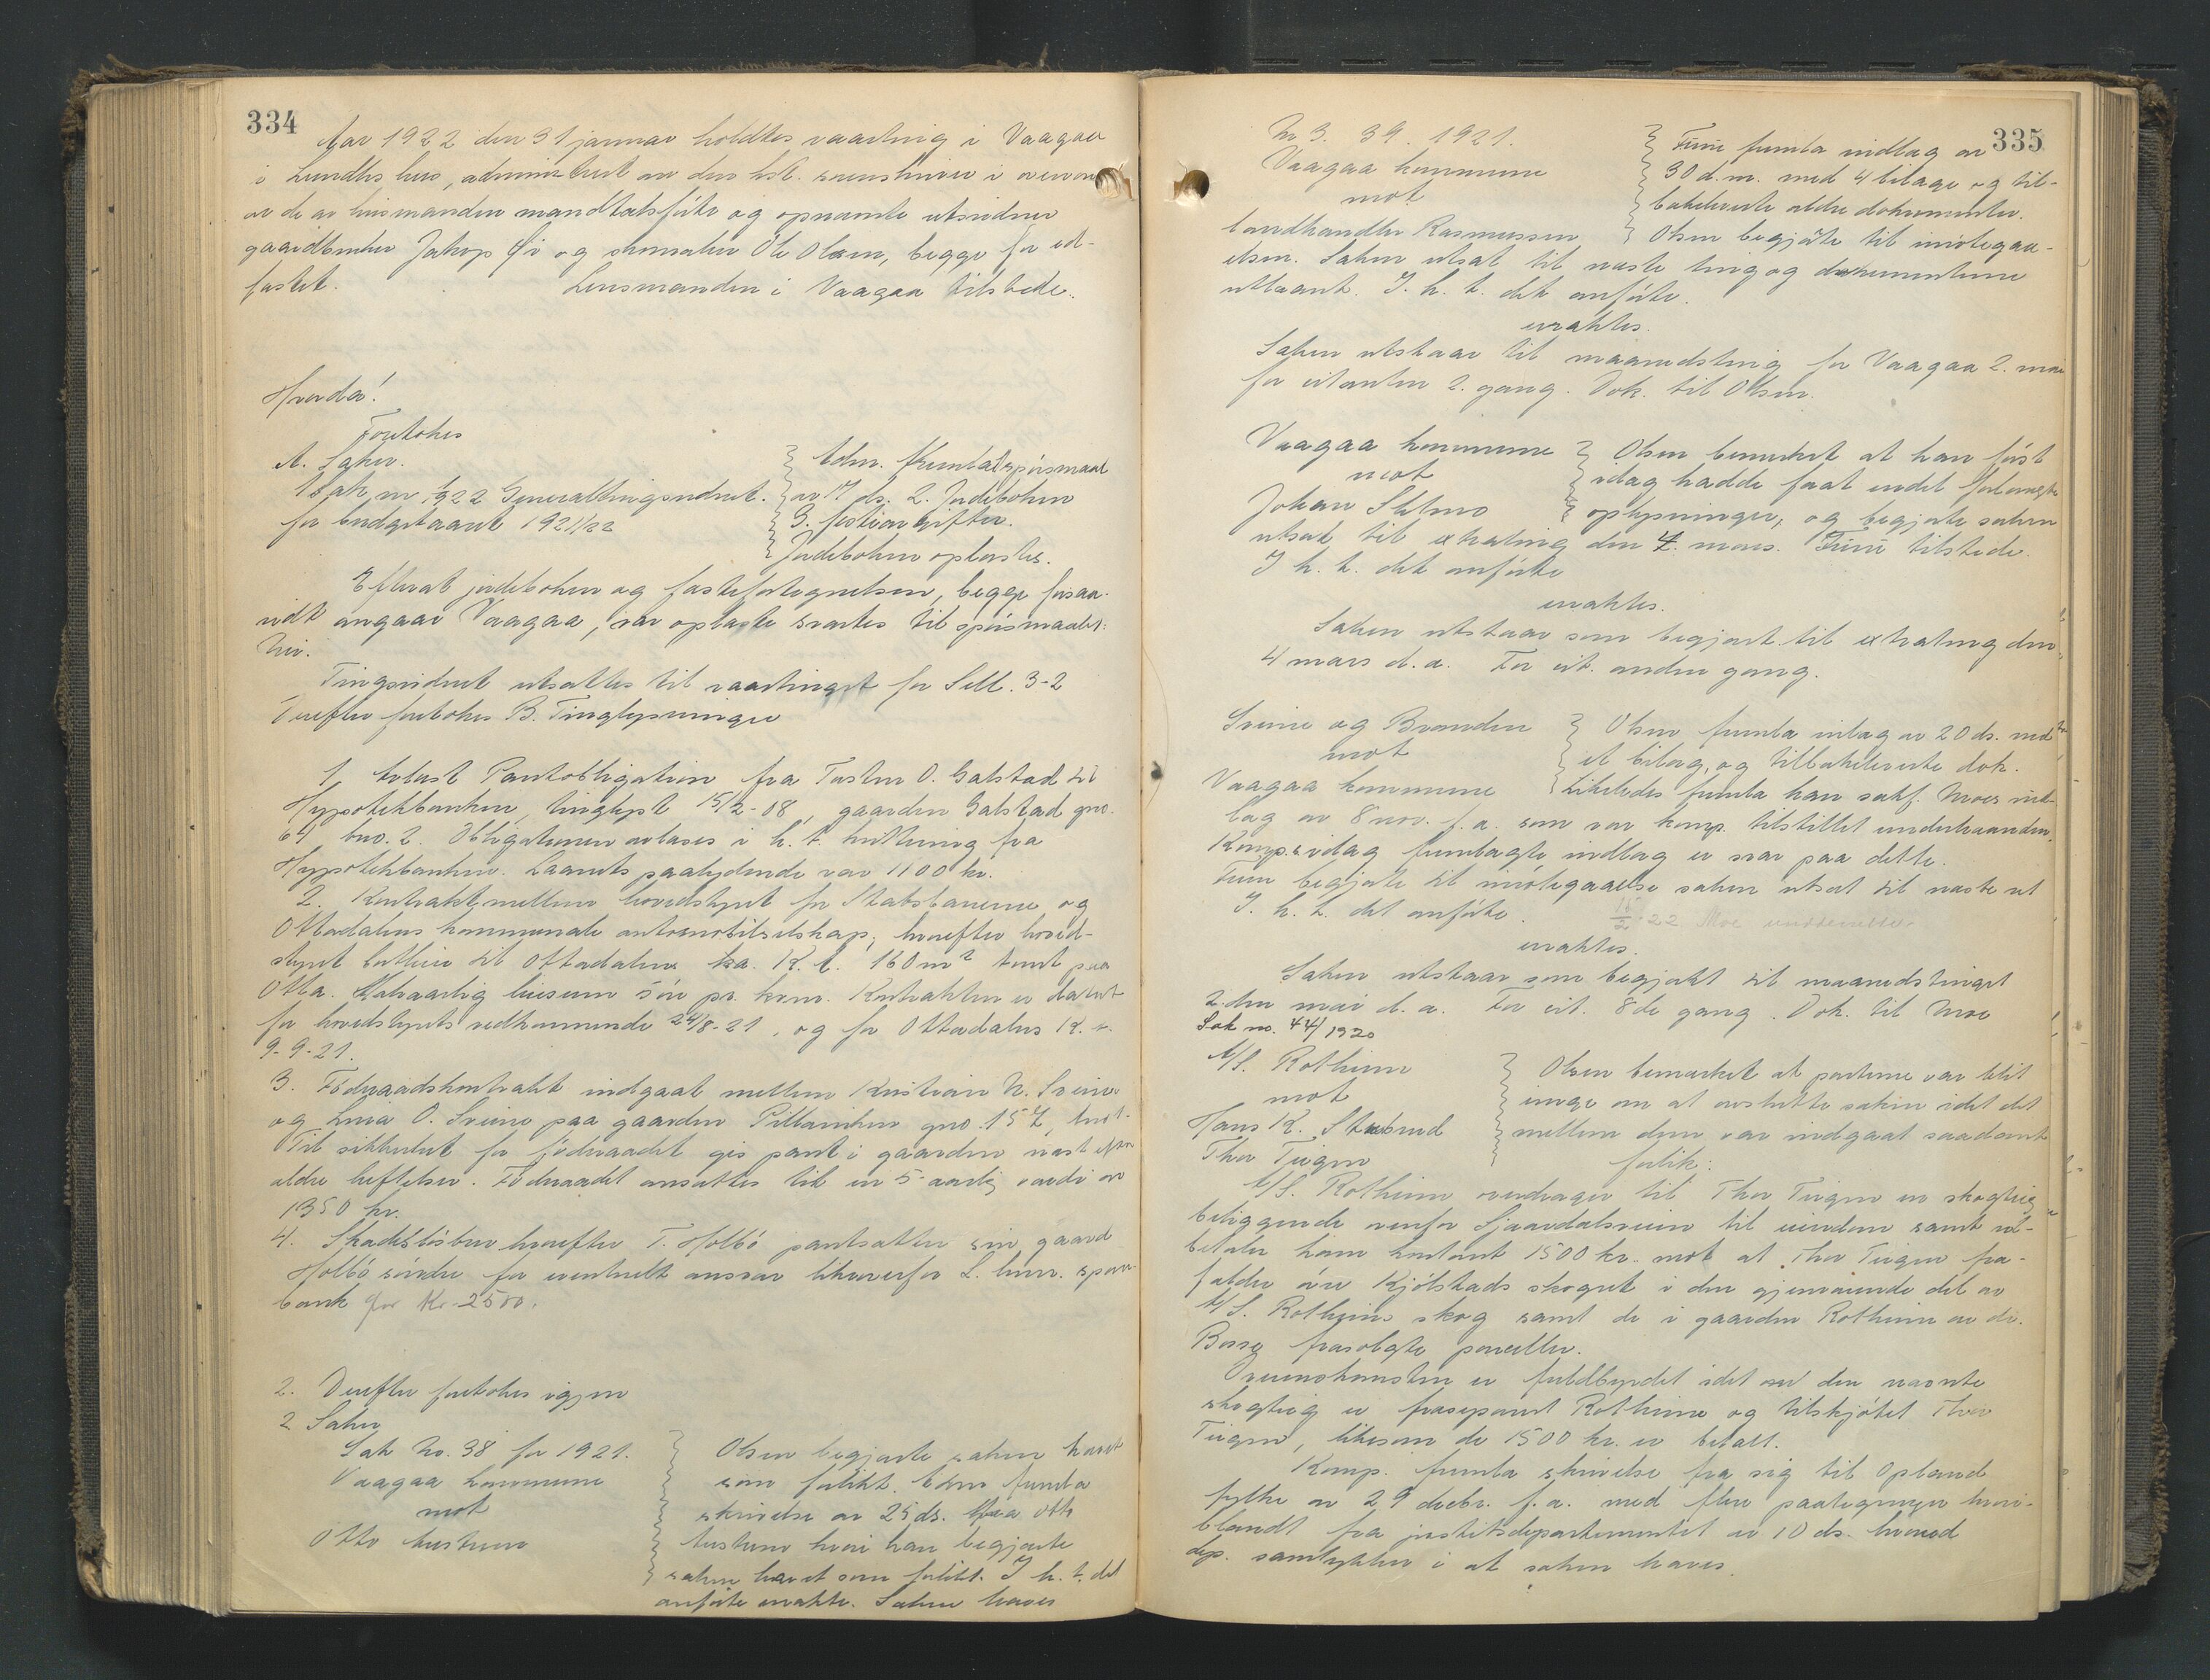 334
Aar 1922 den 31 januar holdtes vaarting i Vaagaa
i Lundhs hus, administrert av den kst. sorenskriver i overvær
av de av lensmanden mandtalsførte og opnævnte utsidner
gaardbruker Jakop Øi og skomaker Ole Olsen, begge før ed-
fæstet. Lensmanden i Vaagaa tilstede.
Hvorda!
Foretokes
A. Saker.
1 Sak nr 1/1922 Generaltingsvidnet.
for budgetaaret 1921/22
Adm. fremla 1 spørsmaal
av 17 ds. 2. Jordeboken
3. festeavgifter.
Jordeboken oplæstes.
Efterat jordeboken og festefortegnelsen, begge forsaa-
vidt angaar Vaagaa, var oplæste svartes til spørsmaalet:
Nei.
Tingsvidnet utsattes til vaartinget for Sell. 3-2
Derefter foretokes B. Tinglysninger
1, Avlæst Pantobligation fra Tosten O. Galstad til
Hypotekbanken, tinglyst 15/2-08, gaarden Galstad gno.
64 bno. 2. Obligationen avlæses i h. t. kvittering fra
Hypotekbanken. Laanets paalydende var 1100 kr.
2. Kontrakt mellem hovedstyret for Statsbanerne og
Ottadalens kommunale automobilselskap, hvorefter hoved-
styret bortleier til Ottadalens ka. K. l. 160 m² tomt paa
Otta. Halvaarlig leiesum 5 øre pr. kvm. Kontrakten er datert
for hovedstyrets vedkommende 24/8-21, og for Ottadalens K. a.
9-9-21.
3. Føderaadskontrakt indgaat mellem Kristian N. Sveine
og Livia O. Sveine paa gaarden Pillarviken gno. 157, bno 1.
Til sikkerhet for føderaadet gis pant i gaarden næst efter
ældre heftelser. Føderaadet ansættes til en 5-aarlig værdi av
1350 kr.
4. Skadesløsbrev hvorefter T. Holbø pantsætter sin gaard
Holbø søndre for eventuelt ansvar likeoverfor L. kom. spare-
bank for Kr. 2500.
2. Derefter foretokes igjen
2 Saker
Sak No. 38 for 1921.
Vaagaa kommune
mot
Otto Austrem
Olsen begjærte saken hævet
som forlikt. Adm fremla
skrivelse av 25 ds. fra Otto
Austrem hvori han begjærte
saken hævet som forlikt. I h. t. det
anførte eraktes. Saken hæves
335
Nr 3. 39. 1921.
Vaagaa kommune
mot
landhandler Rasmussen
Furu fremla indlæg av
30 d.m. med 4 bilage og til-
bakeleverte ældre dokumenter.
Olsen begjærte til imøtegaa-
elsen. Saken utsat til næste ting og dokumenterne
utlaant. I. h. t. det anførte.
eraktes.
Saken utstaar til maanedsting for Vaagaa 2. mai
for citanten 2. gang. Dok. til Olsen.
Vaagaa kommune
mot
Johan Sletmo
Olsen bemerket at han først
idag hadde faat endel forlangte
oplysninger, og begjærte saken
utsat til extrating den 4. mars. Furu tilstede.
I h. t. det anførte
eraktes.
Saken utstaar som begjært til extrating den
4 mars d. a. For cit. anden gang.
Sveine og Branden
mot
Vaagaa kommune
Olsen fremla inlæg av 20 ds. med
et bilag, og tilbakeleverte dok.
Likeledes fremla han sakf. Moes ind-
læg av 8 nov. f. a. som var komp. tilstillet underhaanden.
Komp.s idag fremlagte indlæg er svar paa dette.
Furu begjærte til imøtegaaelse saken utsat til næste ut
I. h. t. det anførte. 15/2 22 Moe underrettet.
eraktes.
Saken utstaar som begjært til maanedstinget
2den mai d. a. For cit. 8de gang. Dok. til Moe
Sak no. 44/1920
A/S. Rotheim
mot
Hans K. Stabrud
Thor Teigen
Olsen bemerket at parterne var blit
enige om at avslutte saken idet det
mellem dem var indgaat saadant
forlik:
A/S. Rotheim overdrager til Thor Teigen en skogteig
beliggende ovenfor Sjaardalsveien til eiendom samt ut-
betaler ham kontant 1500 kr. mot at Thor Teigen fra-
falder øvre Kjølstads skogret i den gjenværende del av
A/S. Rotheims skog samt de i gaarden Rotheim av dr.
Borse frasolgte parceller.
Overenskomsten er fuldbyrdet idet den nævnte
skogteig er fraseparert Rotheim og tilskjøtet Thor
Teigen, likesom de 1500 kr. er betalt.
Komp. fremla skrivelse fra sig til Opland
fylke av 29 decbr. f. a. med flere paategninger hvori-
blandt fra justitsdepartementet av 10 ds. hvorved
dep. samtykker i at saken hæves.